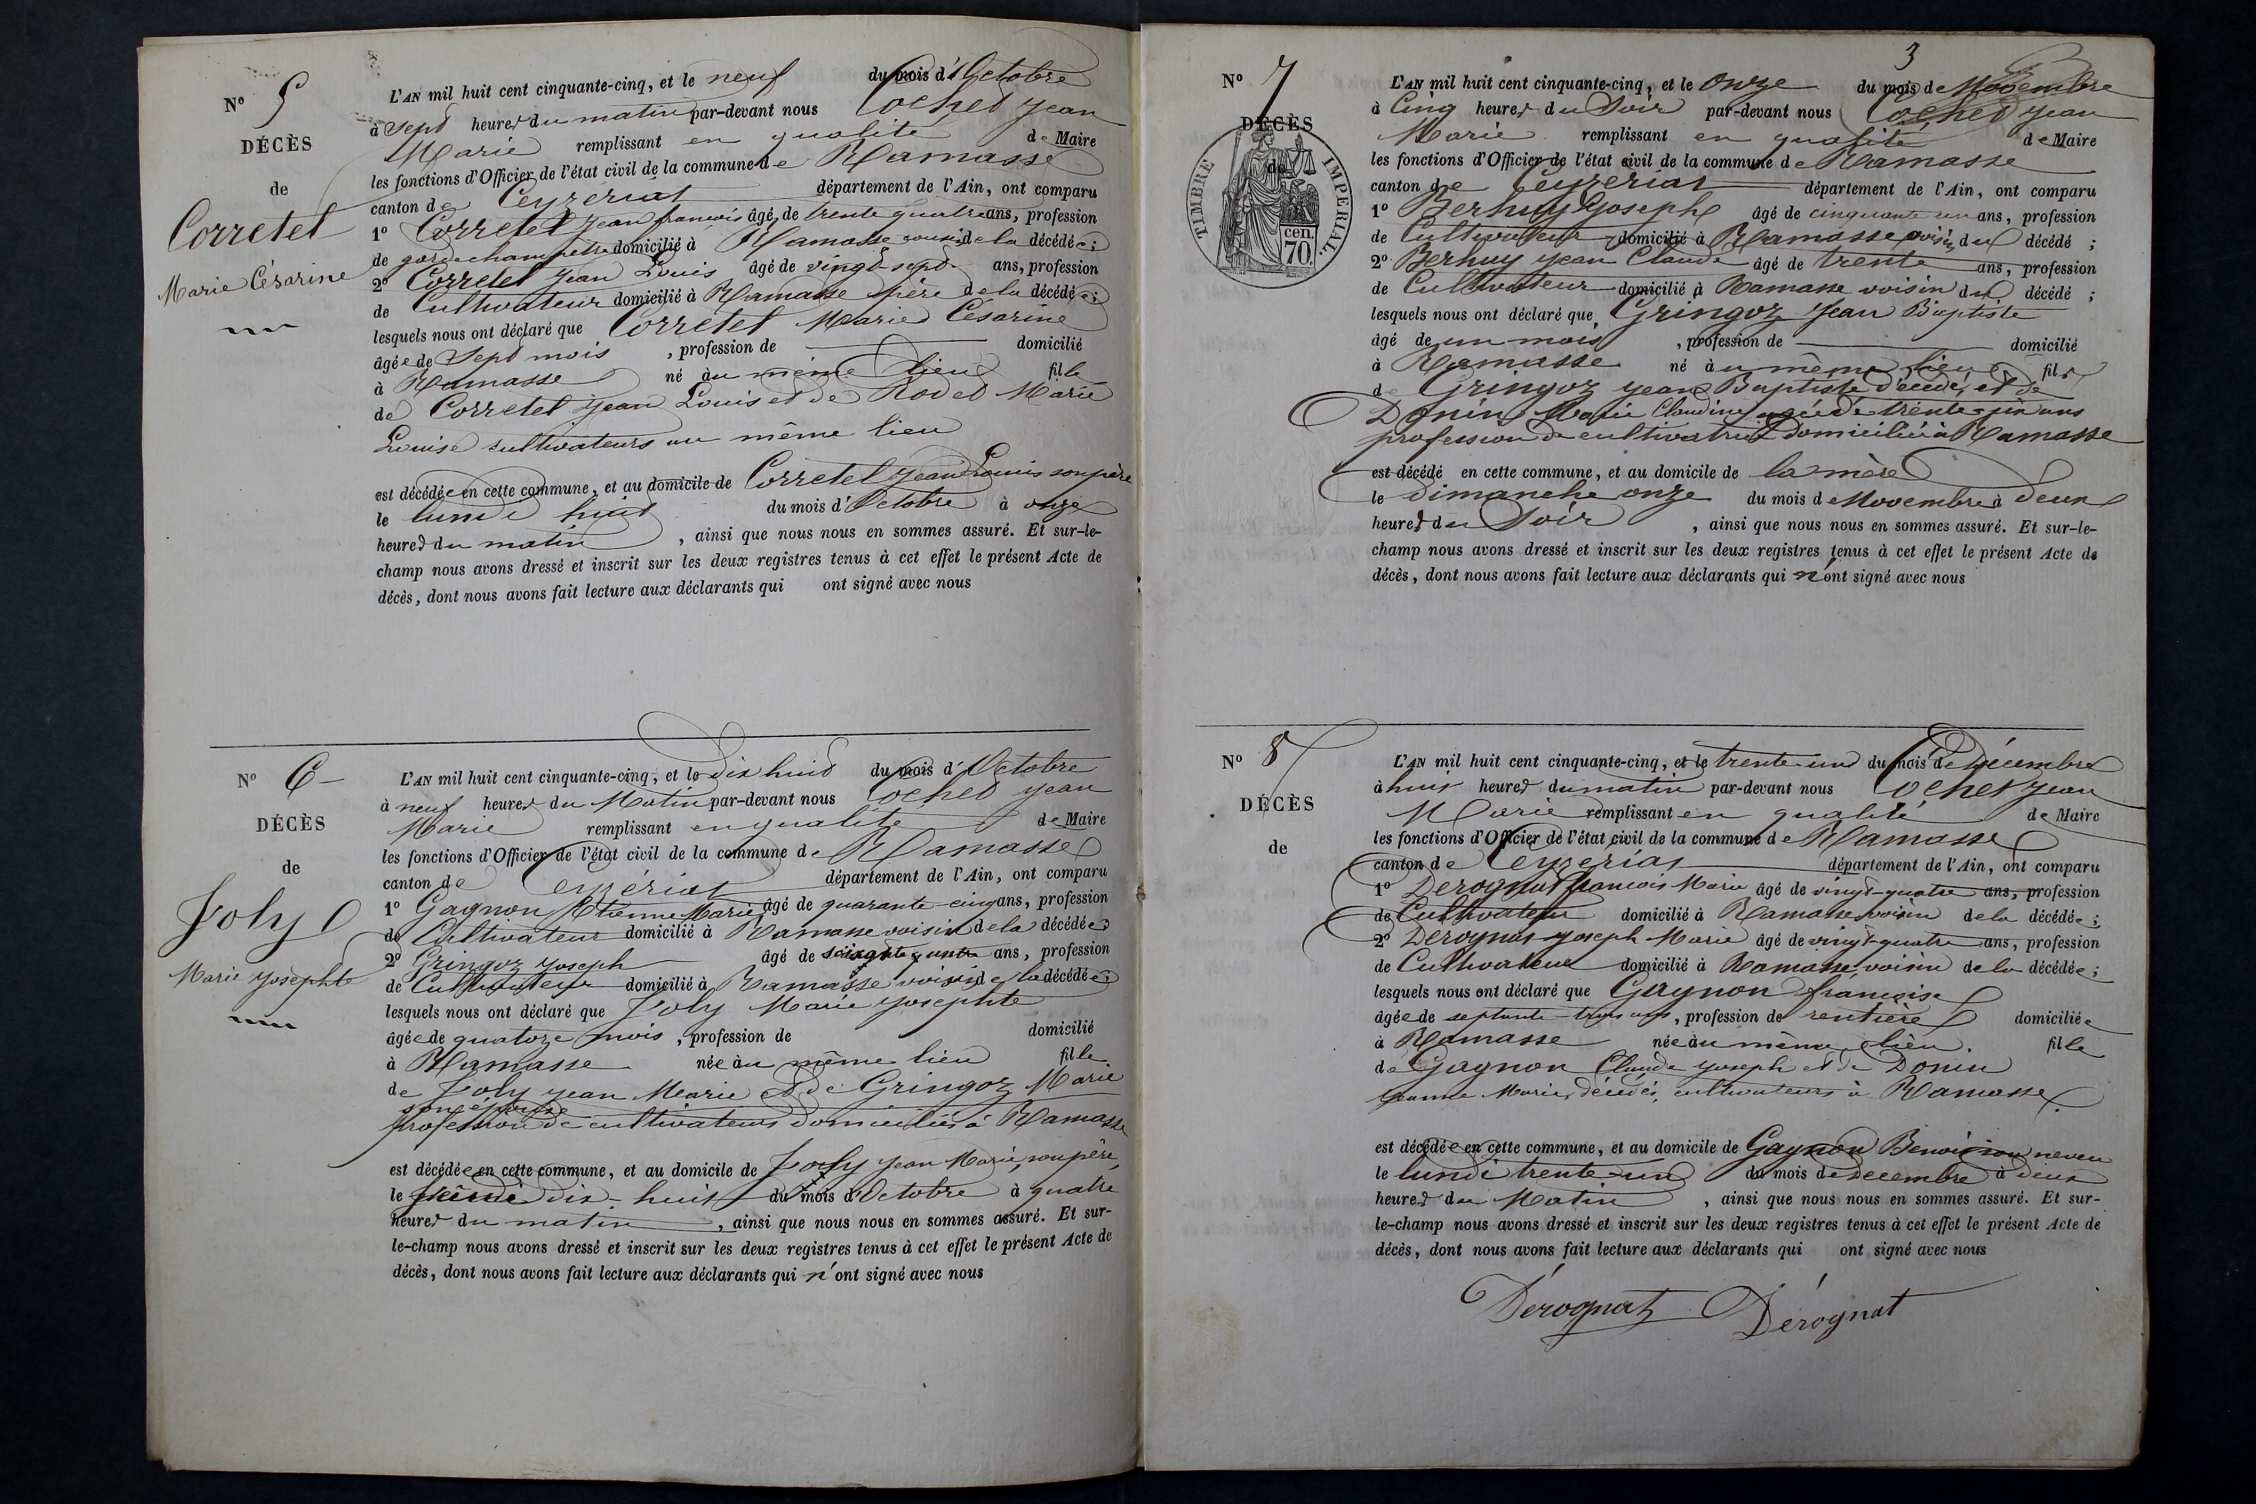 N° 5
DÉCÈS
de
Corretel
Marie Césarine
L'AN mil huit cent cinquante-cinq, et le neuf du mois d'Octobre
à sept heures du matin par-devant nous Cochet Jean
Marie remplissant en qualité de Maire
les fonctions d'Officier de l'état civil de la commune de Ramasse
canton de Ceyzeriat département de l'Ain, ont comparu
1° Corretel Jean françois âgé de trente quatre ans, profession
de garde champêtre domicilié à Ramasse cousin de la décédée ;
2° Corretel Jean Louis âgé de vingt sept ans, profession
de Cultivateur domicilié à Ramasse père de la décédée ;
lesquels nous ont déclaré que Corretel Marie Césarine
âgée de sept mois , profession de domicilié
à Ramasse né au même lieu fille
de Corretel Jean Louis et de Rodet Marie
Louise cultivateurs au même lieu
est décédée en cette commune, et au domicile de Corretel Jean Louis son père
le lundi huit du mois d'Octobre à onze
heures du matin , ainsi que nous nous en sommes assuré. Et sur-le-
champ nous avons dressé et inscrit sur les deux registres tenus à cet effet le présent Acte de
décès, dont nous avons fait lecture aux déclarants qui ont signé avec nous
N° 6
DÉCÈS
de
Joly
Marie Josephte
L'AN mil huit cent cinquante-cinq, et le dix huit du mois d'Octobre
à neuf heures du Matin par-devant nous Cochet Jean
Marie remplissant en qualité de Maire
les fonctions d'Officier de l'état civil de la commune de Ramasse
canton de Ceyzériat département de l'Ain, ont comparu
1° Gagnon Etienne Marie âgé de quarante-cinq ans, profession
de Cultivateur domicilié à Ramasse voisin de la décédée ;
2° Gringoz Joseph âgé de ans, profession
de Cultivateur domicilié à Ramasse voisin de la décédée ;
lesquels nous ont déclaré que Joly Marie Josephte
âgée de quatorze mois , profession de domicilié
à Ramasse née au même lieu fille
de Joly Jean Marie et de Gringoz Marie
son épouse
profession de cultivateurs domiciliés à Ramasse
est décédée en cette commune, et au domicile de Joly Jean Marie, son père,
le dix-huit du mois d'Octobre à quatre
heures du matin , ainsi que nous nous en sommes assuré. Et sur-
le-champ nous avons dressé et inscrit sur les deux registres tenus à cet effet le présent Acte de
décès, dont nous avons fait lecture aux déclarants qui n'ont signé avec nous
3
N° 7
DÉCÈS
de
TIMBRE IMPERIAL.
cen.
70.
L'AN mil huit cent cinquante-cinq, et le onze du mois de Novembre
à Cinq heures du Soir par-devant nous Cochet Jean
Marie remplissant en qualité de Maire
les fonctions d'Officier de l'état civil de la commune de Ramasse
canton de Ceyzeriat département de l'Ain, ont comparu
1° Berhuy Joseph âgé de cinquante un ans, profession
de Cultivateur domicilié à Ramasse voisin du décédé ;
2° Berhuy Jean Claude âgé de trente ans, profession
de Cultivateur domicilié à Ramasse voisin du décédé ;
lesquels nous ont déclaré que Gringoz Jean Baptiste
âgé de un mois , profession de domicilié
à Ramasse né au même lieu fils
de Gringoz Jean Baptiste décédé, et de
Donin Marie Claudine agée de trente-six ans
profession de cultivatrice domiciliée à Ramasse
est décédé en cette commune, et au domicile de la mère
le dimanche onze du mois de Novembre à deux
heures du Soir , ainsi que nous nous en sommes assuré. Et sur-le-
champ nous avons dressé et inscrit sur les deux registres tenus à cet effet le présent Acte de
décès, dont nous avons fait lecture aux déclarants qui n'ont signé avec nous
N° 8
DÉCÈS
de
L'AN mil huit cent cinquante-cinq, et le trente-un du mois de Décembre
à huit heures du matin par-devant nous Cochet Jean
Marie remplissant en qualité de Maire
les fonctions d'Officier de l'état civil de la commune de Ramasse
canton de Ceyzeriat département de l'Ain, ont comparu
1° Derognat françois Marie âgé de vingt-quatre ans, profession
de Cultivateur domicilié à Ramasse voisin de la décédée ;
2° Derognat Joseph Marie âgé de vingt-quatre ans, profession
de Cultivateur domicilié à Ramasse, voisin de la décédée ;
lesquels nous ont déclaré que Gagnon françoise
âgée de septante-trois ans , profession de rentière domiciliée
à Ramasse née au même lieu. fille
de Gagnon Claude Joseph et de Donin
Jeanne Marie, décédés, cultivateurs à Ramasse
est décédée en cette commune, et au domicile de Gagnon Benoit son neveu
le lundi trente-un du mois de decembre à deux
heures du Matin , ainsi que nous nous en sommes assuré. Et sur-
le-champ nous avons dressé et inscrit sur les deux registres tenus à cet effet le présent Acte de
décès, dont nous avons fait lecture aux déclarants qui ont signé avec nous
Dérognat Dérognat